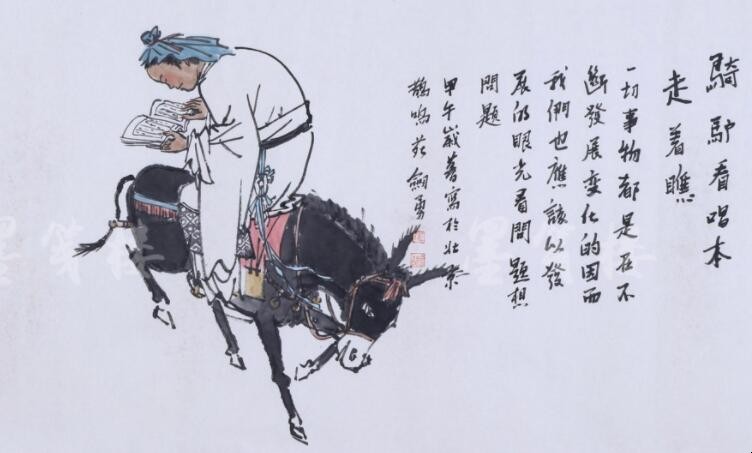 騎驴看唱本
走着瞧
一切事物都是在不
斷發展变化的因而
我們也應該以發
展的眼光看問題想
問題
甲午歲暮寫於北京
鳴苑劍勇